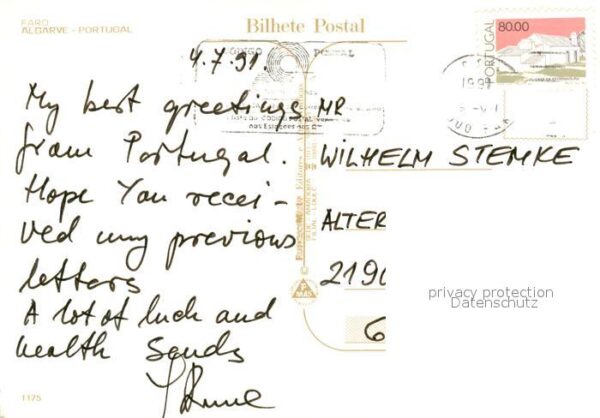 FARO
ALGARVE - PORTUGAL
Bilhete Postal
PORTUGAL
80.00
4.7.91.
CÓDIGO POSTAL
1991
My best greetings
from Portugal.
Hope You recei-
ved my previous
letters
A lot of luck and
health Sends
MR
WILHELM STEMKE
ALTER
219
6
privacy protection
Datenschutz
1175